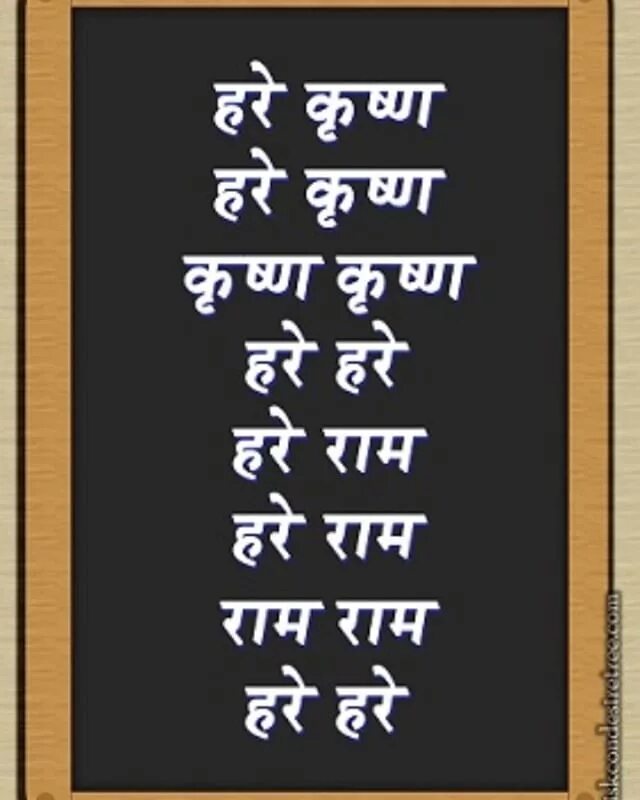 हरे कृष्ण
हरे कृष्ण
कृष्ण कृष्ण
हरे हरे
हरे राम
हरे राम
राम राम
हरे हरे
iskcondesiretree.com